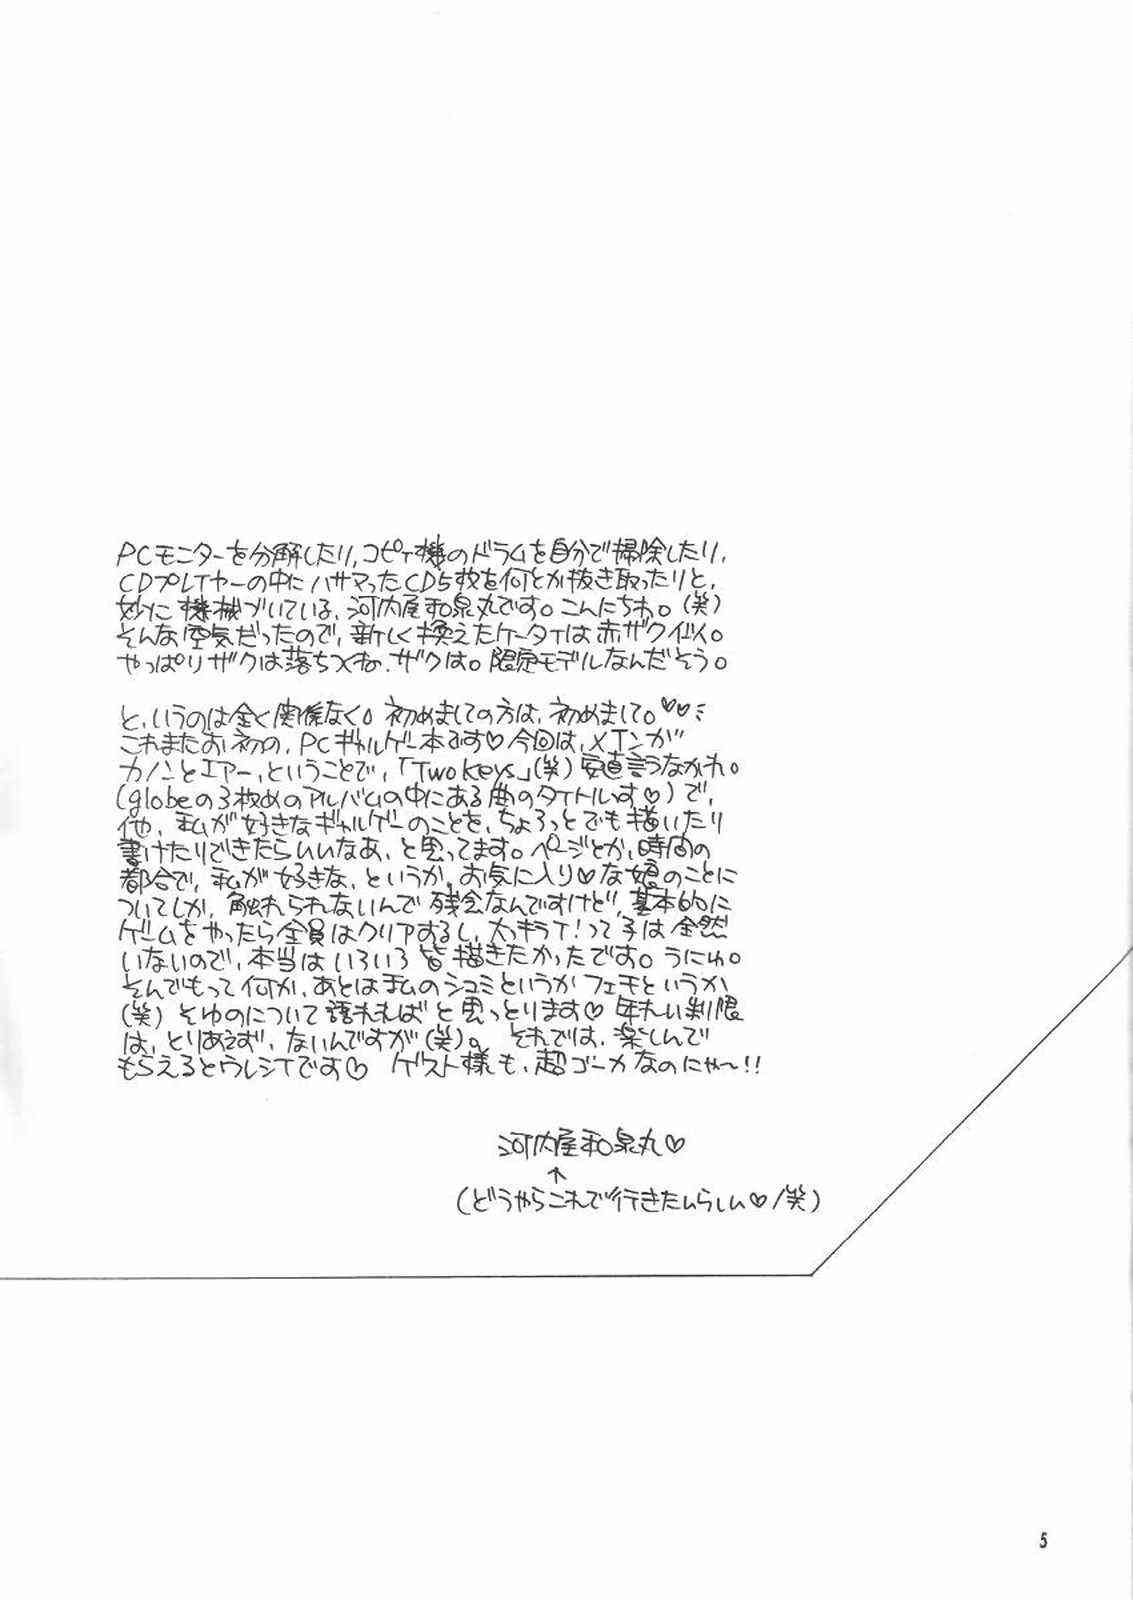 PCモニターを分解したり、コピー機のドラムを自分で掃除したり、
CDプレイヤーの中にハサマったCD5枚を何とか抜き取ったりと、
妙に機械づいている、河内屋和泉丸です。こんにちわ。(笑)
そんな空気だったので、新しく換えたケータイは赤ザク仕様。
やっぱりザクは落ちつくね、ザクは。限定モデルなんだそう。
と、いうのは全く関係なく。初めましての方は、初めまして。♡♡
これまたお初の、PCギャルゲー本です♡今回は、メインが
カノンとエアー、ということで、「Two Keys」(笑)安直言うなかれ。
(globeの3枚めのアルバムの中にある曲のタイトルす♡)で、
他、私が好きなギャルゲーのことを、ちょろっとでも描いたり
書けたりできたらいいなあ、と思ってます。ページとか、時間の
都合で、私が好きな、というか、お気に入り♡な娘のことに
ついてしか、触れられないんで残念なんですけど、基本的に
ゲームをやったら全員はクリアするし、大っキライ!って子は全然
いないので、本当はいろいろ皆描きたかったです。うにゅ。
そんでもって何か、あとは私のシュミというかフェチというか
(笑)そゆのについて語れればと思っとります♡年れい制限
は、とりあえず、ないんですが(笑)。それでは、楽しんで
もらえるとウレシイです♡ ゲスト様も、超ゴーカなのにゃ〜!!
河内屋和泉丸♡
↑
(どうやらこれで行きたいらしい♡/笑)
5